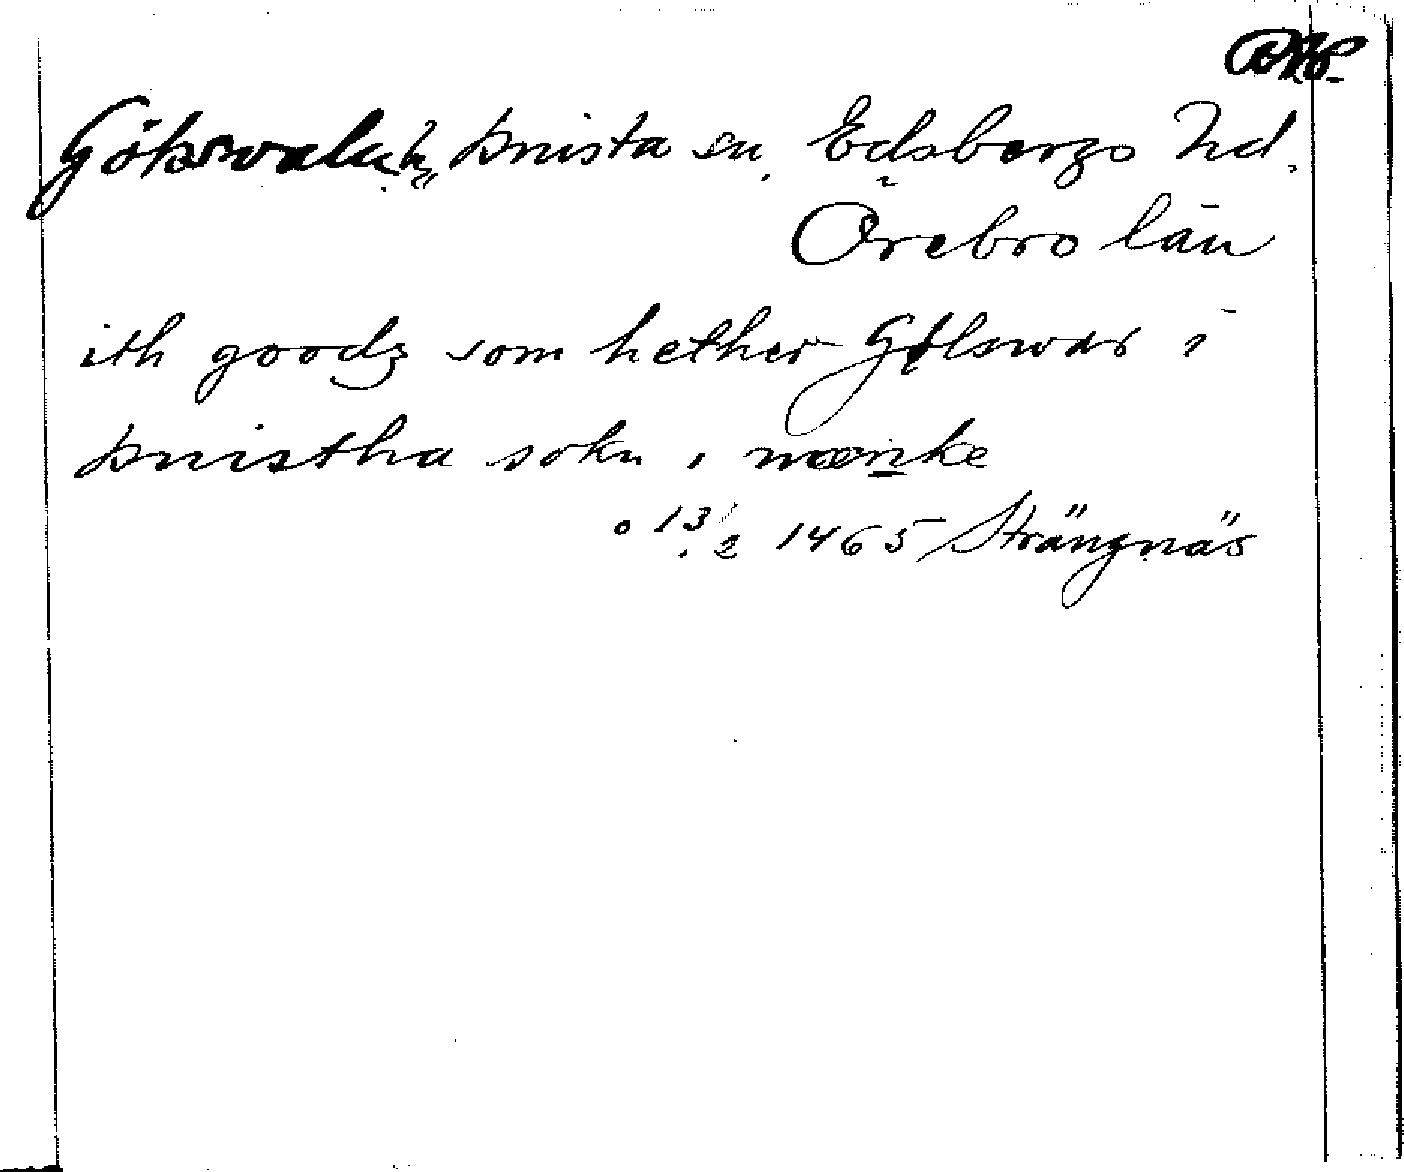 Knista sn. Edsbergs hd.
Örebro län
ith goodz som hether Gølswas i
knistha sokn i nærike
o 13/2 1465 Strängnäs